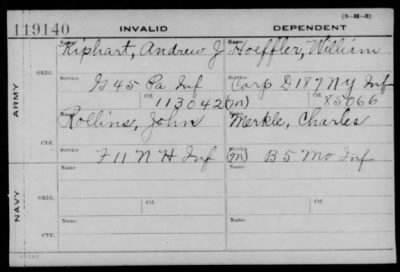 119140 INVALID DEPENDENT (3-M-3)
Name Name
Kiphart, Andrew J Hoeffler, William
ORIG. Service Service
G 45 Pa Inf Corp D 187 N Y Inf
Ctf. 113042 (m) Ctf. 85066
ARMY
Rollins, John Merkle, Charles
CTF.
F 11 N H Inf (m) B 5 Mo Inf
Name Name
ORIG. Service Ctf. Service Ctf.
NAVY
Name Name
CTF.